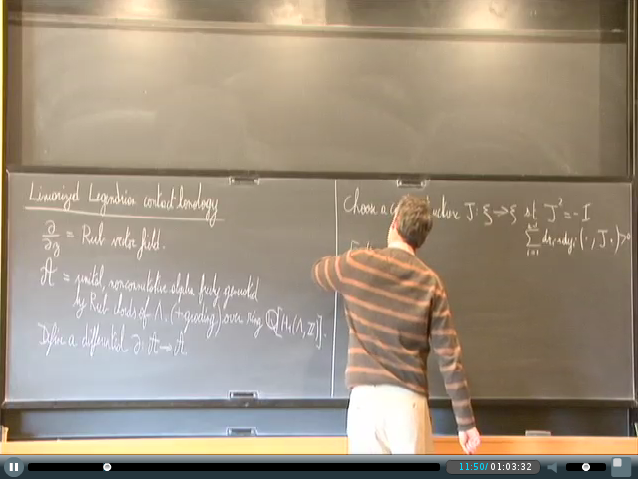 Linearized Legendrian contact homology
∂/∂z = Reeb vector field.
A = unital noncommutative algebra freely generated
by Reeb chords of Λ, (+grading) over ring Q[H₁(Λ,Z)].
Define a differential ∂: A → A
Choose a J: ξ → ξ st J² = -I
Σ dxᵢ∧dyᵢ(·, J·) > 0
i=1
11:50/01:03:32